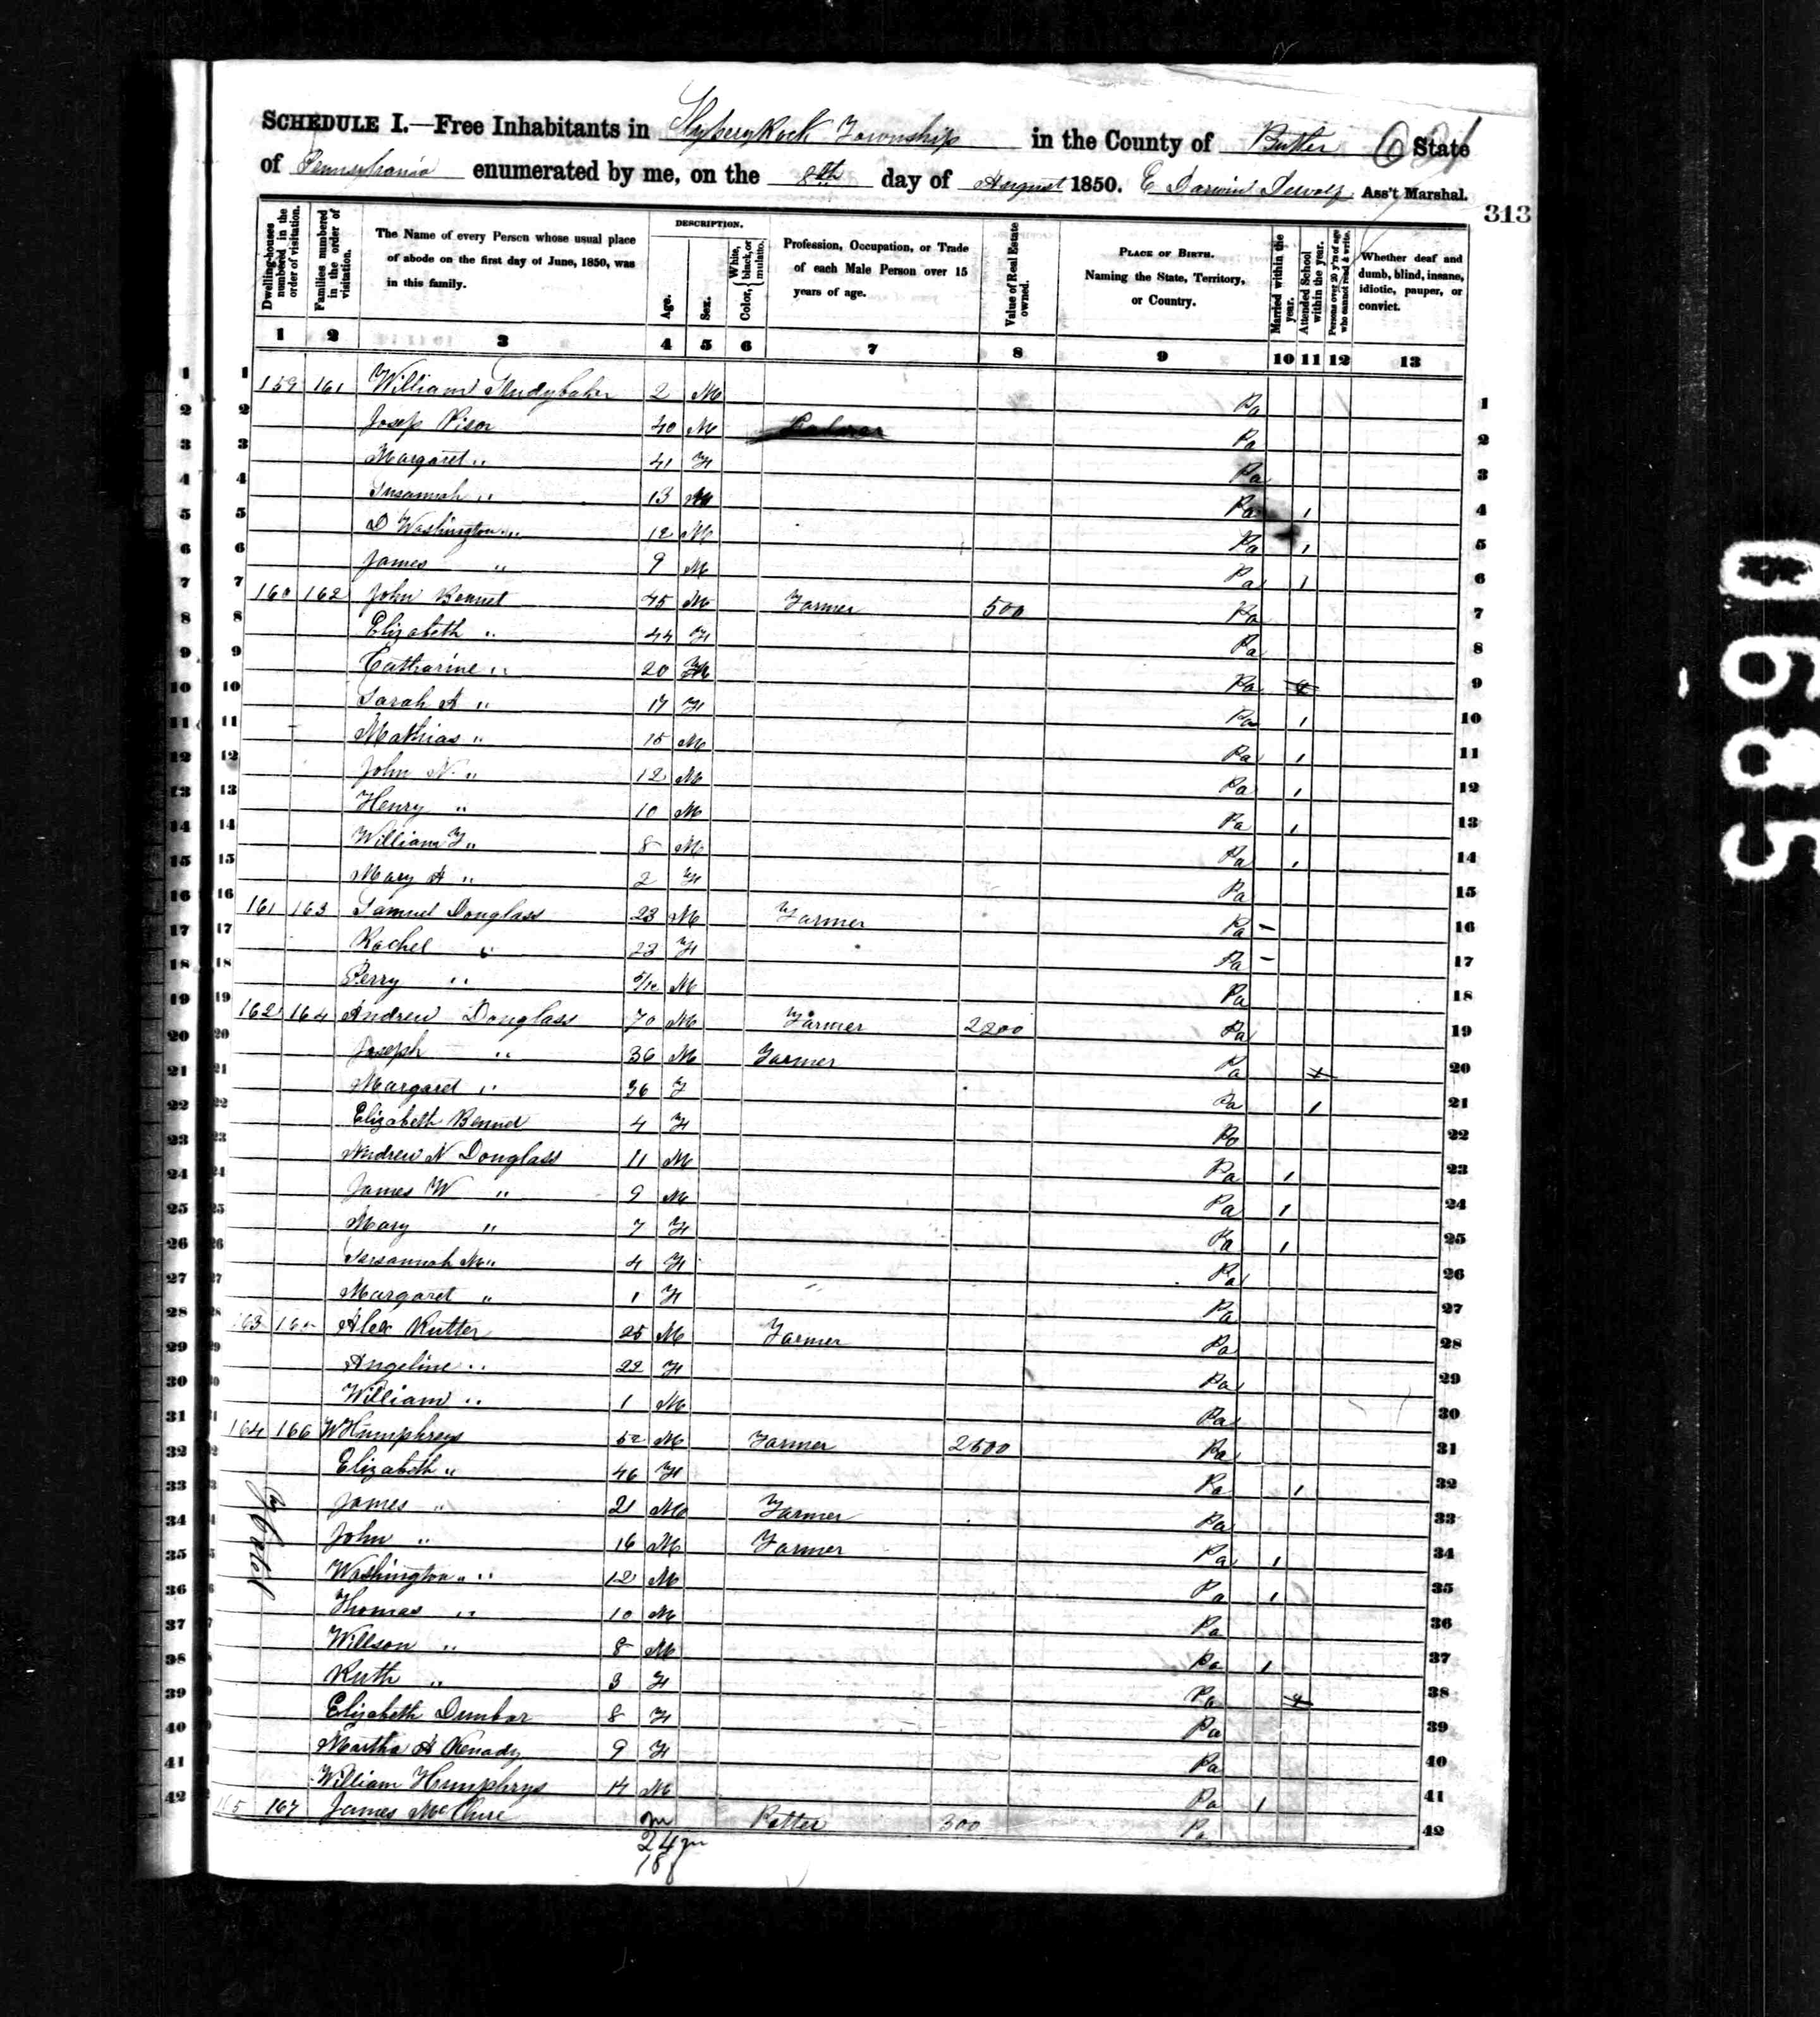 SCHEDULE I.—Free Inhabitants in Slyperyrock Township in the County of Butler State
of Pennsylvania enumerated by me, on the 8th day of August 1850. E Darwin Dewolf Ass't Marshal.
313
Dwelling-houses numbered in the order of visitation.
Families numbered in the order of visitation.
The Name of every Person whose usual place of abode on the first day of June, 1850, was in this family.
DESCRIPTION.
Age.
Sex.
Color, { White, black, or mulatto.
Profession, Occupation, or Trade of each Male Person over 15 years of age.
Value of Real Estate owned.
PLACE OF BIRTH. Naming the State, Territory, or Country.
Married within the year.
Attended School within the year.
Persons over 20 y'rs of age who cannot read & write.
Whether deaf and dumb, blind, insane, idiotic, pauper, or convict.
1 2 3 4 5 6 7 8 9 10 11 12 13
1 159 161 William Studybaker 2 M Pa 1
2 Josep Pisor 40 M Pa 2
3 Margaret " 41 F Pa 3
4 Susannah " 13 Pa 1 4
5 D Washington " 12 M Pa 1 5
6 James " 9 M Pa 1 6
7 160 162 John Bennet 45 M Farmer 500 Pa 7
8 Elizabeth " 44 F Pa 8
9 Catharine " 20 F Pa 9
10 Sarah A " 17 F Pa 1 10
11 Mathias " 15 M Pa 1 11
12 John N " 12 M Pa 1 12
13 Henry " 10 M Pa 1 13
14 William F " 8 M Pa 1 14
15 Mary A " 2 F Pa 15
16 161 163 Samuel Douglass 23 M Farmer Pa – 16
17 Rachel " 23 F Pa – 17
18 Perry " M Pa 18
19 162 164 Andrew Douglass 70 M Farmer 2200 Pa 19
20 Joseph " 36 M Farmer Pa 20
21 Margaret " 36 F Pa 1 21
22 Elizabeth Bennet 4 F Pa 22
23 Andrew N Douglass 11 M Pa 1 23
24 James W " 9 M Pa 1 24
25 Mary " 7 F Pa 1 25
26 Susannah M " 4 F Pa 26
27 Margaret " 1 F Pa 27
28 163 165 Alex Rutter 25 M Farmer Pa 28
29 Angeline " 22 F Pa 29
30 William " 1 M Pa 30
31 164 166 W Humphreys 52 M Farmer 2500 Pa 31
32 Elizabeth " 46 F Pa 1 32
33 James " 21 M Farmer Pa 33
34 John " 16 M Farmer Pa 1 34
35 Washington " 12 M Pa 1 35
36 Thomas " 10 M Pa 36
37 Willson " 8 M Pa 1 37
38 Ruth " 3 F Pa 38
39 Elizabeth Dunbar 8 F Pa 39
40 Martha A Kenady 9 F Pa 40
41 William Humphrys 14 M Pa 1 41
42 165 167 James McClure m Potter 300 Pa 42
24 m
18 f
0685